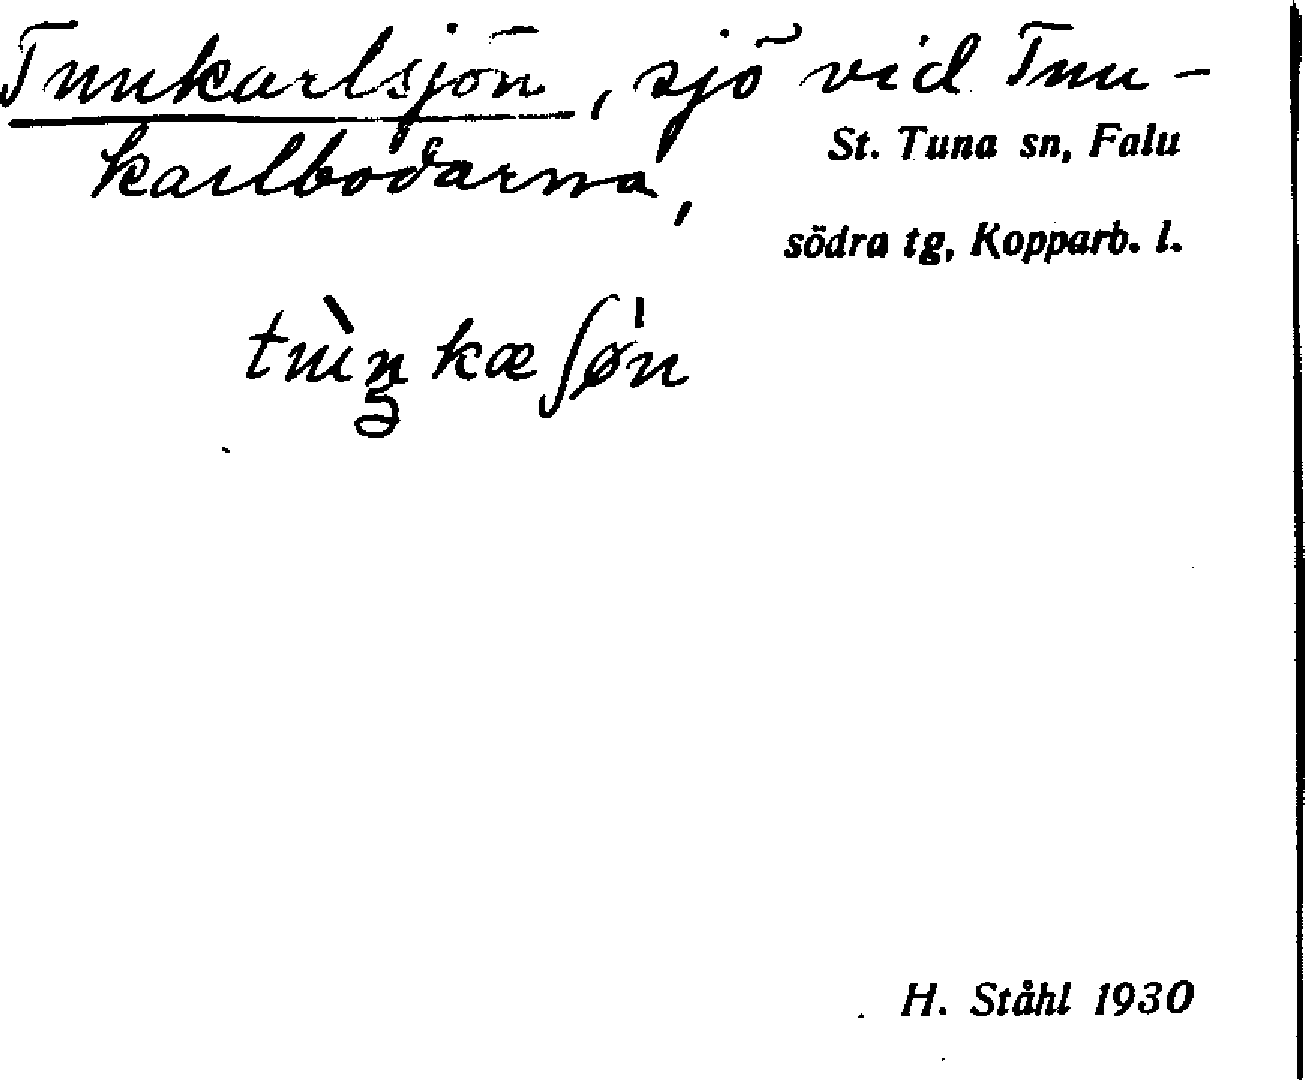 Tunkarlsjön, sjö vid Tun-
karlbodarna,
St. Tuna sn, Falu
södra tg, Kopparb. l.
H. Ståhl 1930